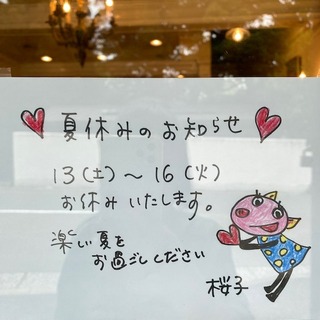 夏休みのお知らせ
13(土)～16(火)
お休みいたします。
楽しい夏を
お過ごしください
桜子